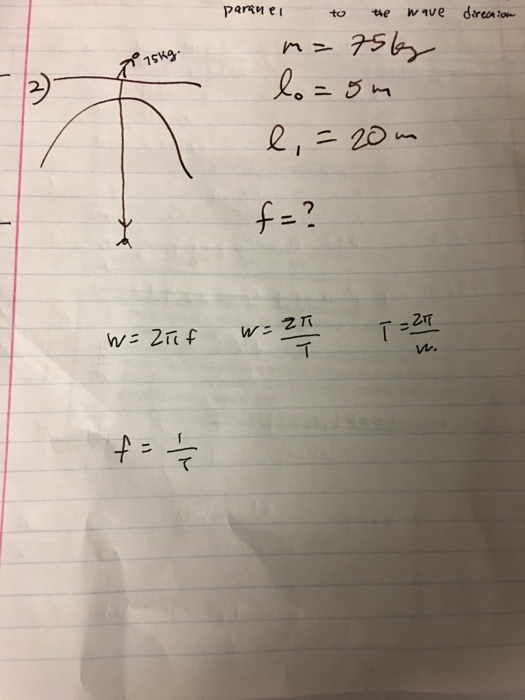 parallel to the wave direction
2) 75kg.
m = 75kg
l₀ = 5m
l₁ = 20m
f = ?
w = 2πf w = 2π/T T = 2π/w.
f = 1/T